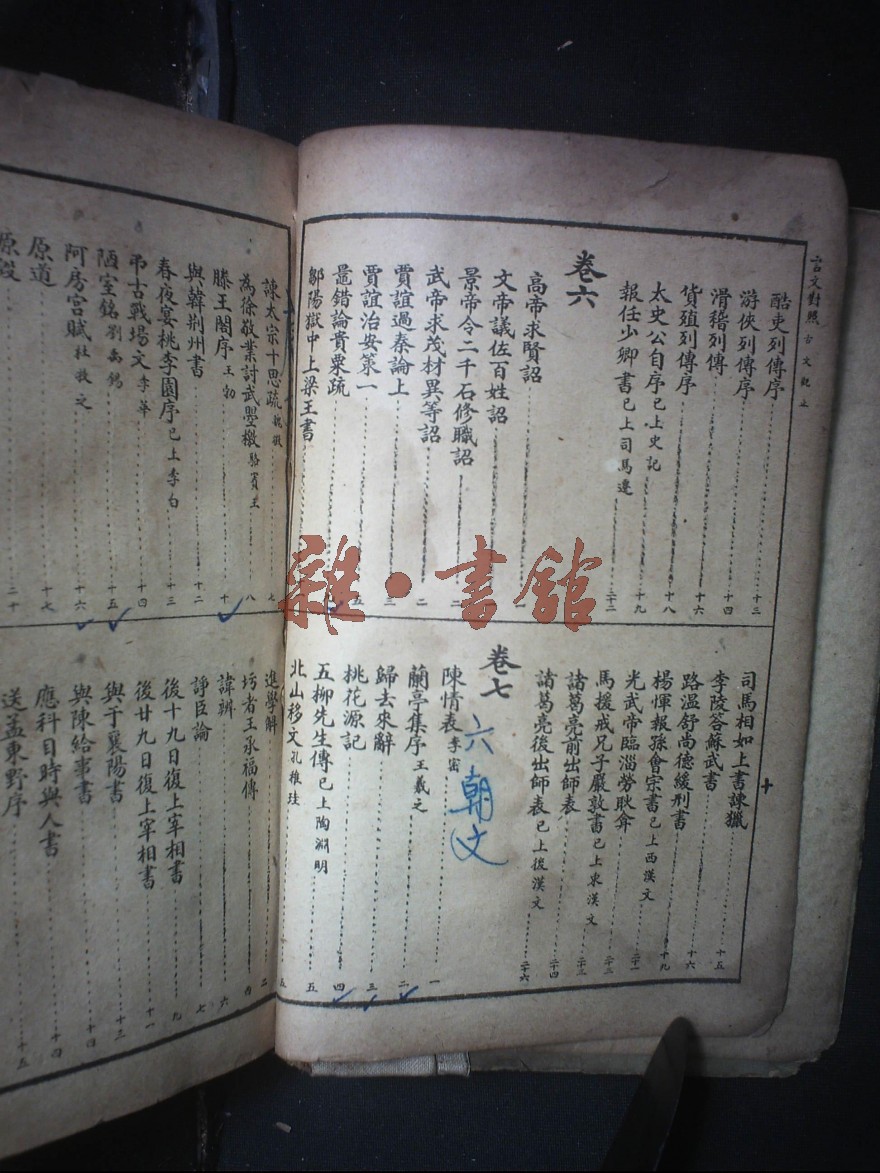 言文對照 古文觀止
十
酷吏列傳序 十三
游俠列傳序 十四
滑稽列傳 十六
貨殖列傳序 十八
太史公自序 已上史記 十九
報任少卿書 已上司馬遷 二十二
卷六
高帝求賢詔 一
文帝議佐百姓詔
景帝令二千石修職詔 二
武帝求茂材異等詔 二
賈誼過秦論上 三
賈誼治安策一 五
鼂錯論貴粟疏
鄒陽獄中上梁王書
司馬相如上書諫獵
李陵答蘇武書 十五
路溫舒尚德緩刑書 十六
楊惲報孫會宗書 已上西漢文 十九
光武帝臨淄勞耿弇 二十一
馬援戒兄子嚴敦書 已上東漢文 二十二
諸葛亮前出師表 二十四
諸葛亮後出師表 已上後漢文 二十六
卷七
六朝文
陳情表 李密 一
蘭亭集序 王羲之 二
歸去來辭 三
桃花源記 四
五柳先生傳 已上陶淵明 五
北山移文 孔稚珪 五
諫太宗十思疏 魏徵 七
為徐敬業討武曌檄 駱賓王 八
滕王閣序 王勃 十
與韓荆州書 十二
春夜宴桃李園序 已上李白 十三
弔古戰場文 李華 十四
陋室銘 劉禹錫 十五
阿房宮賦 杜牧之 十六
原道 十七
原毀 二十
進學解 二
圬者王承福傳 四
諱辨 六
諍臣論 七
後十九日復上宰相書 九
後廿九日復上宰相書 十一
與于襄陽書 十三
與陳給事書 十四
應科目時與人書 十四
送孟東野序 十五
雜·書館